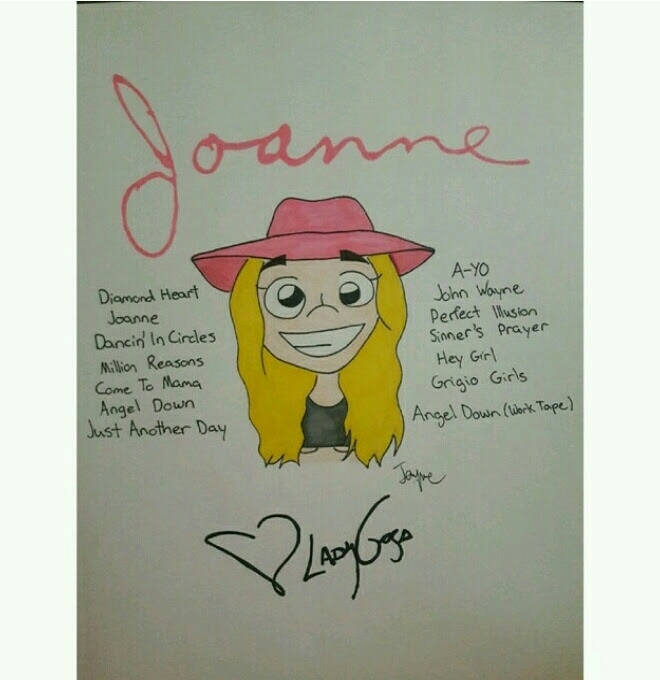 Joanne
Diamond Heart
Joanne
Dancin' In Circles
Million Reasons
Come To Mama
Angel Down
Just Another Day
A-YO
John Wayne
Perfect Illusion
Sinner's Prayer
Hey Girl
Grigio Girls
Angel Down (Work Tape)
Jayne
Lady Gaga